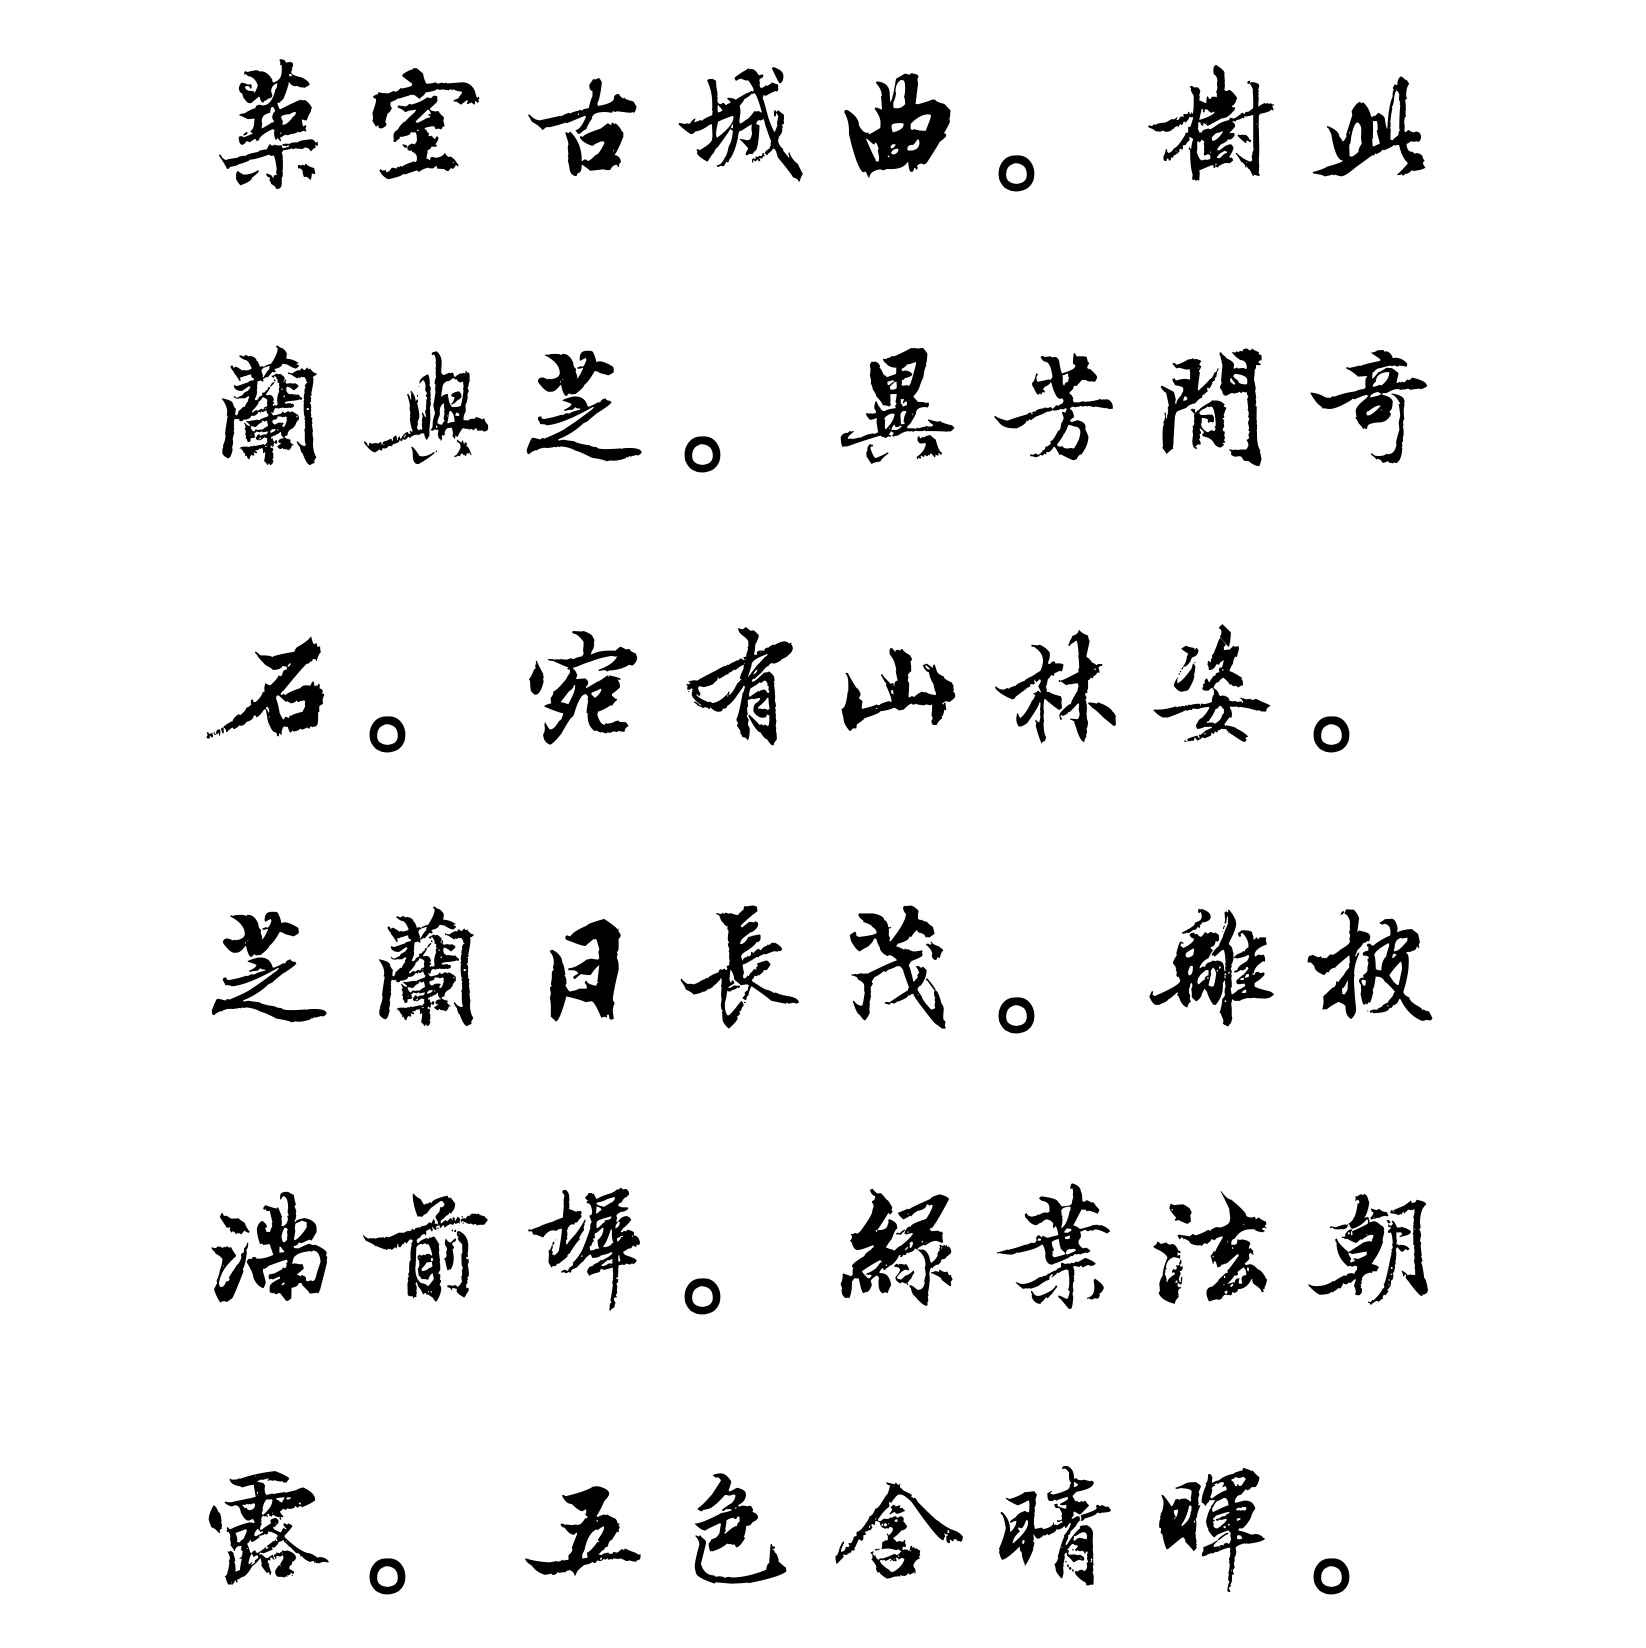 築室古城曲。樹此
蘭與芝。異芳間奇
石。宛有山林姿。
芝蘭日長茂。離披
滿前墀。綠葉泫朝
露。五色含晴暉。